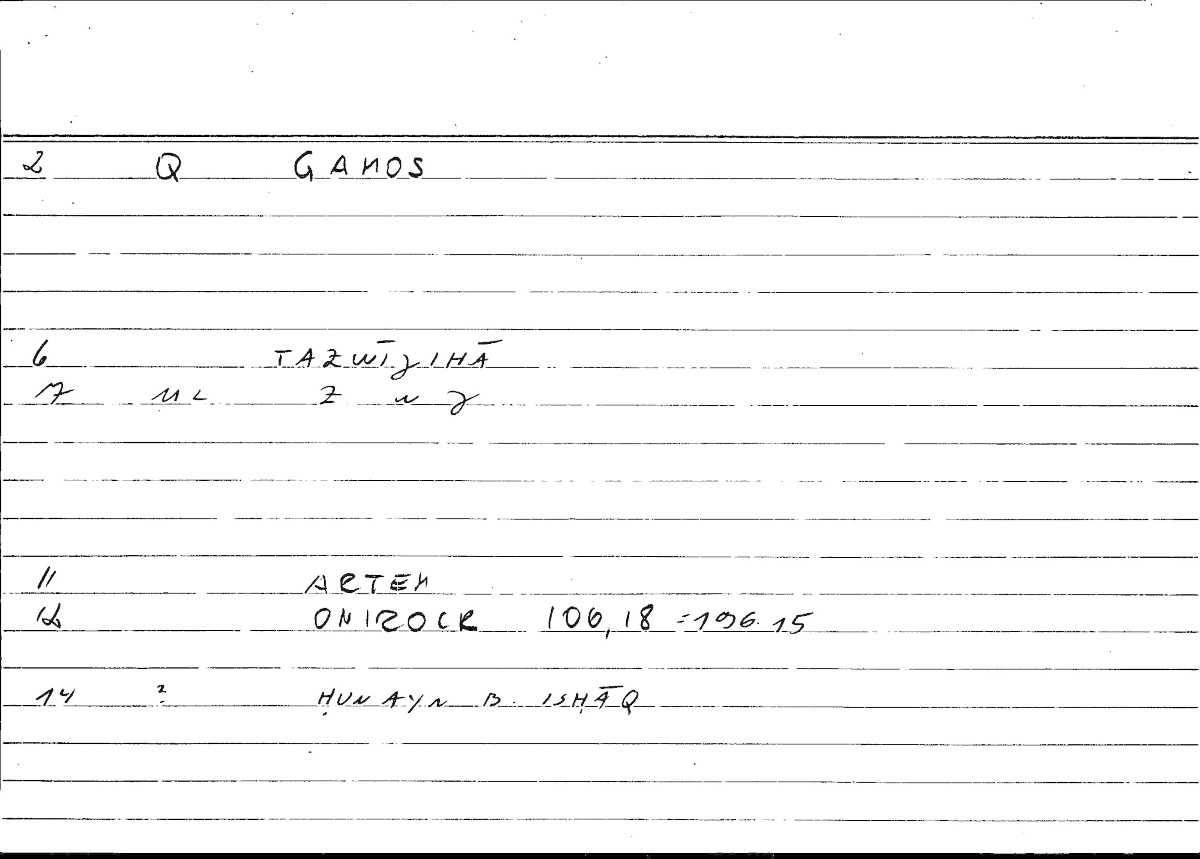 2 Q GAMOS
6 TAZWĪJIHĀ
7 ML Z W J
11 ARTEM
12 ONIROCR 106,18 = 196.15
14 ? ḤUNAYN B. ISḤĀQ